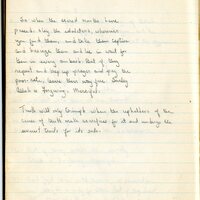 So when the sacred months have
passed, slay the idolators, wherever
you find them, and take them captive
and besiege them and lie in wait for
them in every ambush. But if they
repent and keep up prayer and pay the
poor-rate, leave their way free. Surely
Allah is Forgiving, Merciful.
Truth will only triumph when the upholders of the
cause of truth make sacrifices for it and undergo the
severest trials for its sake.